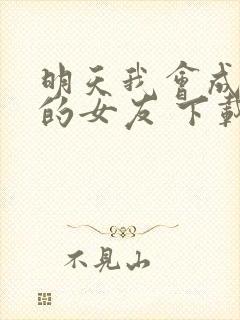 明天我會成
的女友 下載
不見山